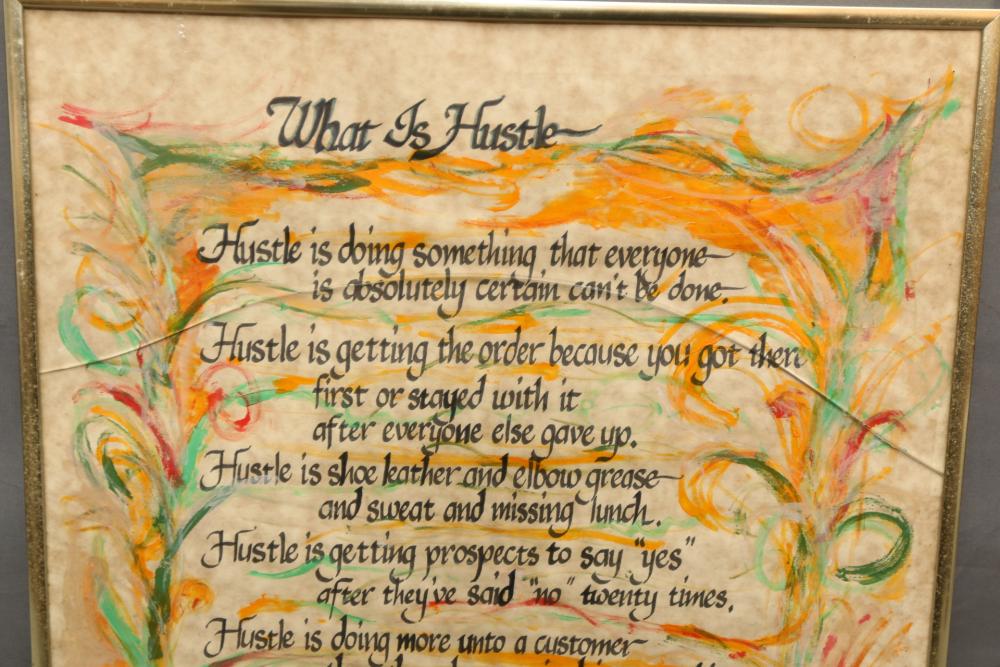 What Is Hustle
Hustle is doing something that everyone
is absolutely certain can't be done.
Hustle is getting the order because you got there
first or stayed with it
after everyone else gave up.
Hustle is shoe leather and elbow grease
and sweat and missing lunch.
Hustle is getting prospects to say "yes"
after they've said "no" twenty times.
Hustle is doing more unto a customer